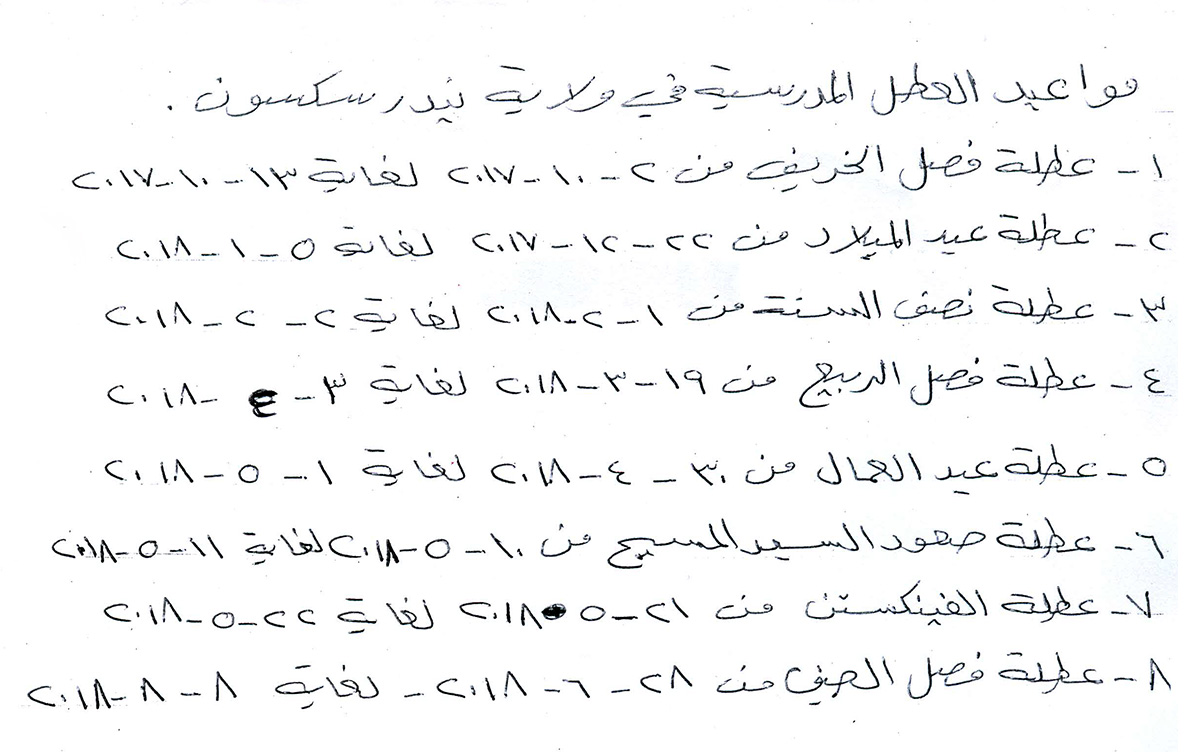 مواعيد العطل المدرسية في ولاية نيدرسكسون .
١- عطلة فصل الخريف من ٢-١٠-٢٠١٧ لغاية ١٣-١٠-٢٠١٧
٢- عطلة عيد الميلاد من ٢٢-١٢-٢٠١٧ لغاية ٥-١-٢٠١٨
٣- عطلة نصف السنة من ١-٢-٢٠١٨ لغاية ٢-٢-٢٠١٨
٤- عطلة فصل الربيع من ١٩-٣-٢٠١٨ لغاية ٣-٤-٢٠١٨
٥- عطلة عيد العمال من ٣٠-٤-٢٠١٨ لغاية ١-٥-٢٠١٨
٦- عطلة صعود السيد المسيح من ١٠-٥-٢٠١٨ لغاية ١١-٥-٢٠١٨
٧- عطلة الفينكستن من ٢١-٥-٢٠١٨ لغاية ٢٢-٥-٢٠١٨
٨- عطلة فصل الصيف من ٢٨-٦-٢٠١٨- لغاية ٨-٨-٢٠١٨